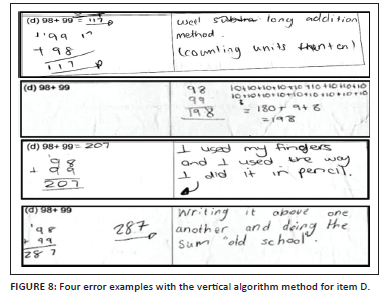 (d) 98+ 99 = 117
99
+ 98
117
well long addition
method.
(counting units
(d) 98+ 99
98
99
198
10+10+10+10+10+10+10+10+10
10+10+10+10+10+10+10+10+10
= 180 + 9 + 8
= 198
(d) 98+ 99 = 207
98
+ 99
207
I used my fingers
and I used the way
I did it in pencil.
(d) 98+ 99
98
+ 99
287
287
Writing it above one
another and doing the
sum "old school".
FIGURE 8: Four error examples with the vertical algorithm method for item D.